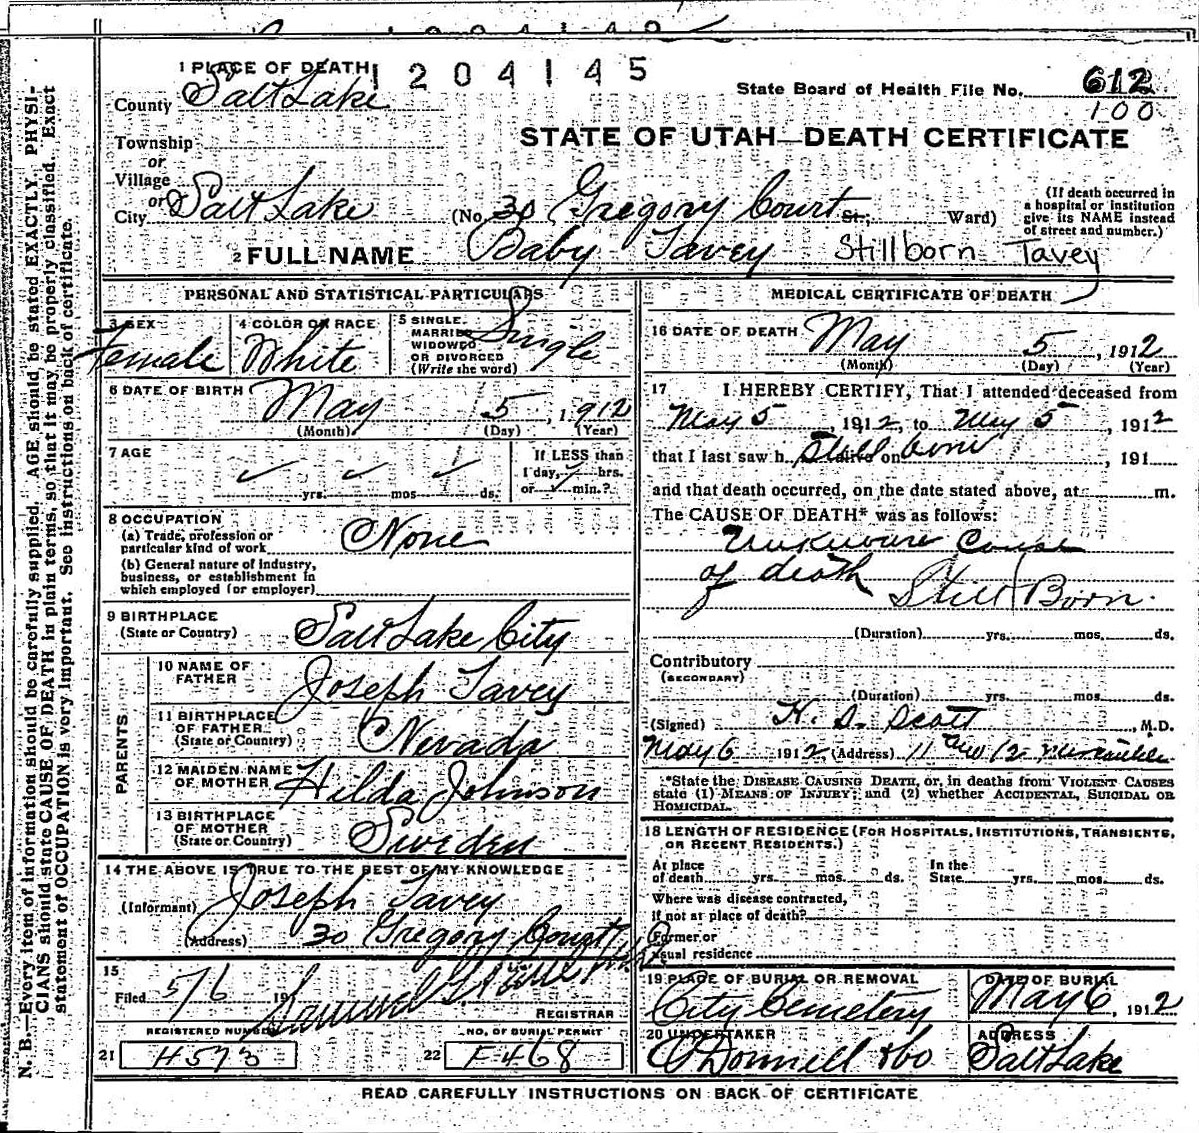 1204145
1 PLACE OF DEATH
County Salt Lake
State Board of Health File No. 612
100
Township
or
Village
or
City Salt Lake
STATE OF UTAH—DEATH CERTIFICATE
(No. 30 Gregory Court St.; Ward)
(If death occurred in
a hospital or institution
give its NAME instead
of street and number.)
2 FULL NAME Baby Tavey Stillborn Tavey
PERSONAL AND STATISTICAL PARTICULARS
3 SEX
Female
4 COLOR OR RACE
White
5 SINGLE,
MARRIED
WIDOWED
OR DIVORCED
(Write the word)
Single
6 DATE OF BIRTH
May 5, 1912
(Month) (Day) (Year)
7 AGE
yrs. mos. ds.
If LESS than
1 day, hrs.
or min.?
8 OCCUPATION
(a) Trade, profession or
particular kind of work None
(b) General nature of industry,
business, or establishment in
which employed (or employer)
9 BIRTHPLACE
(State or Country) Salt Lake City
PARENTS
10 NAME OF
FATHER Joseph Tavey
11 BIRTHPLACE
OF FATHER
(State or Country) Nevada
12 MAIDEN NAME
OF MOTHER Hilda Johnson
13 BIRTHPLACE
OF MOTHER
(State or Country) Sweden
14 THE ABOVE IS TRUE TO THE BEST OF MY KNOWLEDGE
(Informant) Joseph Tavey
(Address) 30 Gregory Court
15
Filed 5/6 191 Samuel G.
REGISTRAR
REGISTERED NUMBER
21 H573
NO. OF BURIAL PERMIT
22 F468
MEDICAL CERTIFICATE OF DEATH
16 DATE OF DEATH
May 5, 1912
(Month) (Day) (Year)
17 I HEREBY CERTIFY, That I attended deceased from
May 5, 1912, to May 5, 1912
that I last saw h alive on Still born, 191
and that death occurred, on the date stated above, at m.
The CAUSE OF DEATH* was as follows:
Unknown Cause
of death Still Born.
(Duration) yrs. mos. ds.
Contributory
(SECONDARY)
(Duration) yrs. mos. ds.
(Signed) H. S. Scott, M.D.
May 6 1912 (Address) 11
*State the DISEASE CAUSING DEATH, or, in deaths from VIOLENT CAUSES
state (1) MEANS OF INJURY; and (2) whether ACCIDENTAL, SUICIDAL OR
HOMICIDAL.
18 LENGTH OF RESIDENCE (FOR HOSPITALS, INSTITUTIONS, TRANSIENTS,
OR RECENT RESIDENTS.)
At place
of death yrs. mos. ds.
In the
State yrs. mos. ds.
Where was disease contracted,
if not at place of death?
Former or
usual residence
19 PLACE OF BURIAL OR REMOVAL
City Cemetery
DATE OF BURIAL
May 6, 1912
20 UNDERTAKER
O'Donnell & Co
ADDRESS
Salt Lake
READ CAREFULLY INSTRUCTIONS ON BACK OF CERTIFICATE
N. B.—Every item of information should be carefully supplied. AGE should be stated EXACTLY. PHYSI-
CIANS should state CAUSE OF DEATH in plain terms, so that it may be properly classified. Exact
statement of OCCUPATION is very important. See instructions on back of certificate.